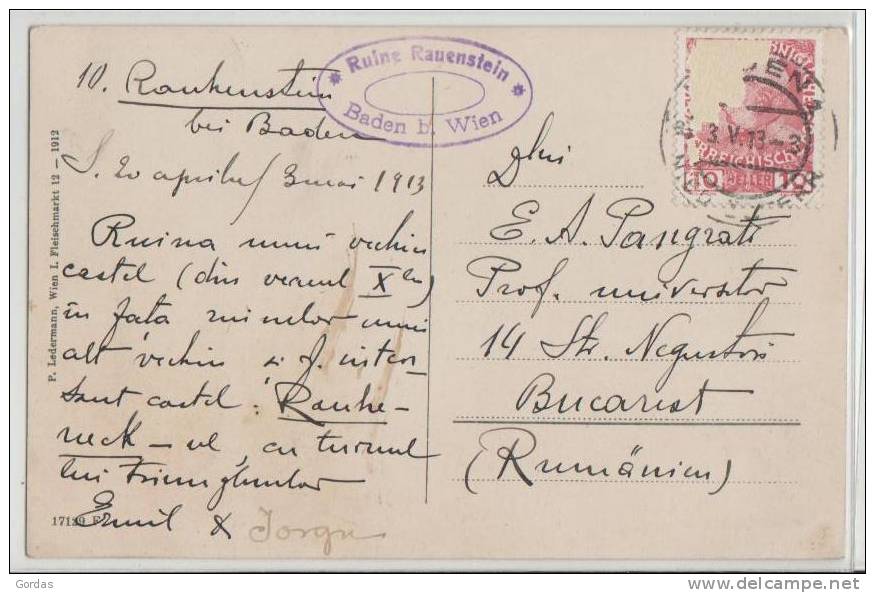 10. Rauhenstein
bei Baden
S. 20 aprilie / 3 mai 1913
Ruina unui vechiu
castel (din veacul X len)
în fața ruinelor unui
alt vechiu și f. interesant
sant castel: Rauhe-
neck-ul, cu turnul
lui triunghiular
Emil & Iorgu
Ruine Rauenstein
Baden b. Wien
P. Ledermann, Wien I. Fleischmarkt 12 – 1912
17129
3.V.13
RREICHISCH
10 HELLER 10
Dlui
E. A. Pangrati
Prof. universitar
14 Str. Negustori
Bucarest
(Rumänien)
Gordas
delcampe.net